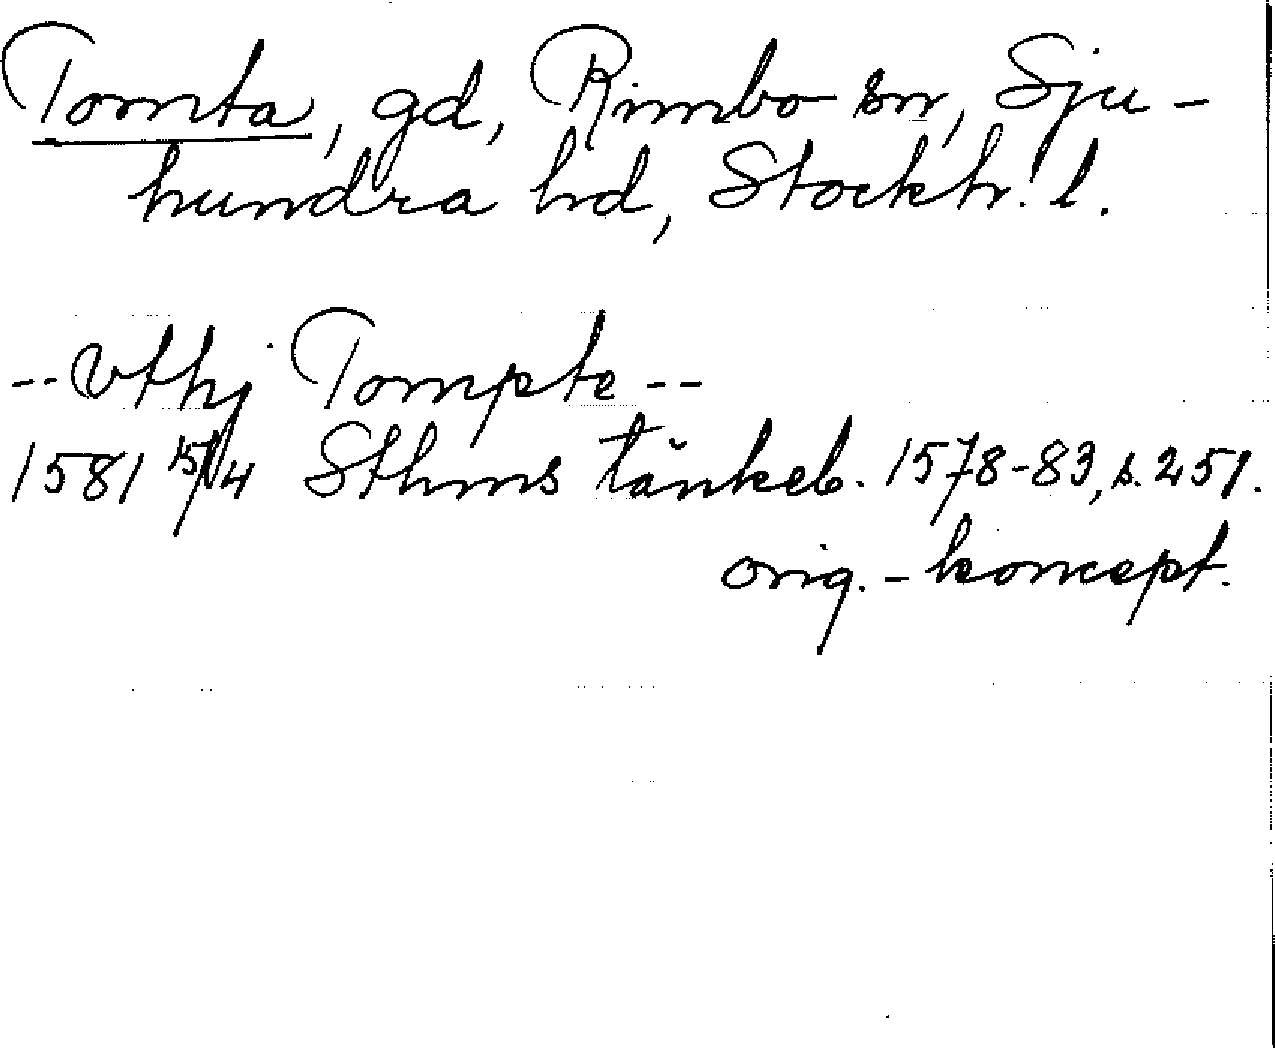 Tomta, gd, Rimbo sn, Sju-
hundra hd, Stockh. l.
-- vthj Tompte --
1581 15/4 Sthms tänkeb. 1578-83, s. 251.
orig. - koncept.